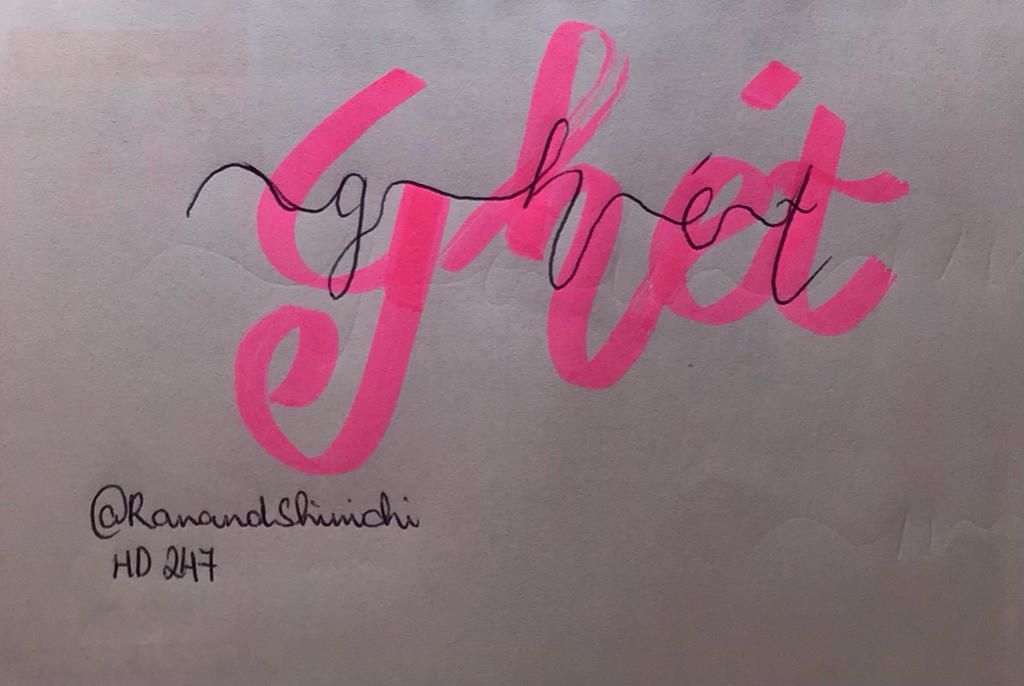 ghét
ghét
@RanandShinichi
HD 247